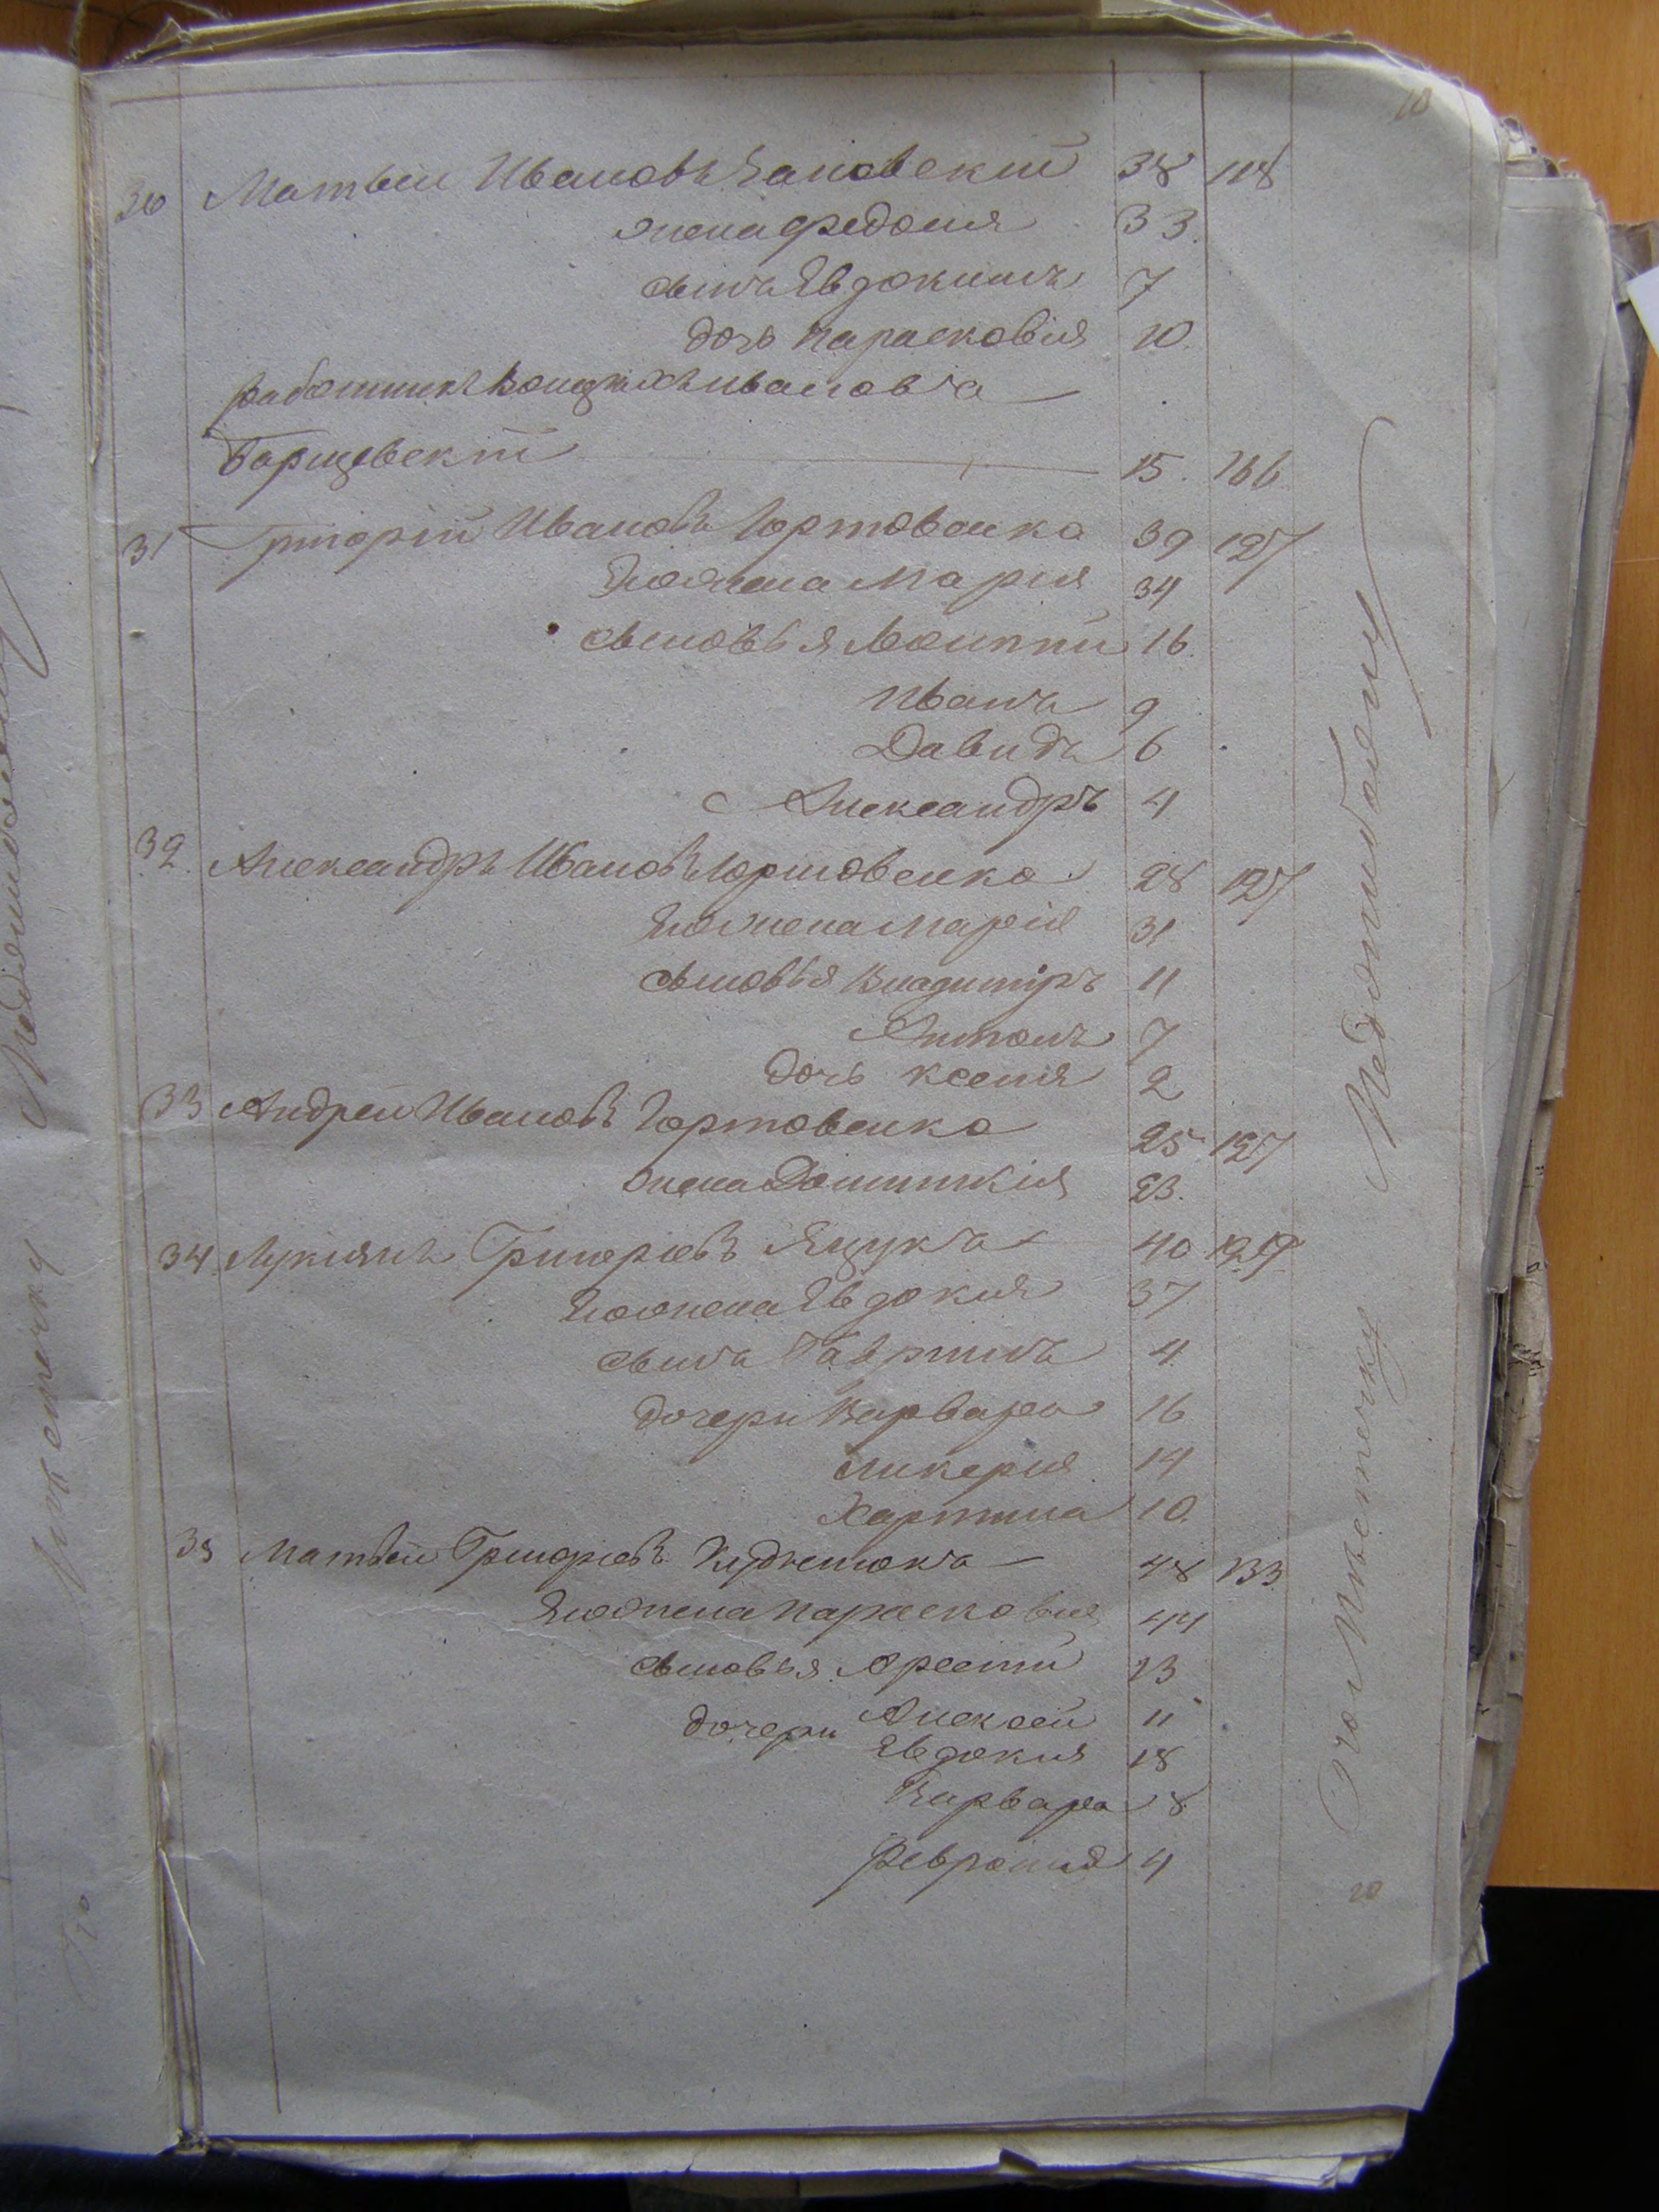 10
30 Матвей Ивановъ 38 118
жена Федосия 33.
сынъ Явдокимъ 7
дочь Парасковия 10.
работникъ Ивановъ
Барщевскій 15. 166
31 Григорій Ивановъ Гортовенко 39 127
Его жена Мария 34
сыновья Леонтий 16.
Иванъ 9
Давидъ 6
Александръ 4
32. Александръ Ивановъ Гортовенко 28 127
Его жена Марія 31
сыновья Владиміръ 11
Антонъ 7
дочь Ксения 2
33 Андрей Ивановъ Гортовенко 25 127
жена Доминикія 23.
34. Лукиянъ Григориевъ Ящукъ 40 129
Его жена Явдокия 37
сынъ Гавриилъ 4
дочери Варвара 16
Ликерия 14
Харитина 10.
35 Матвей Григориевъ 48 133
Его жена Парасковия 44
сыновья Арсений 13
Алексей 11
дочери Явдокия 18
Варвара 8
Феврония 4
По Местечку Меджибожу
20